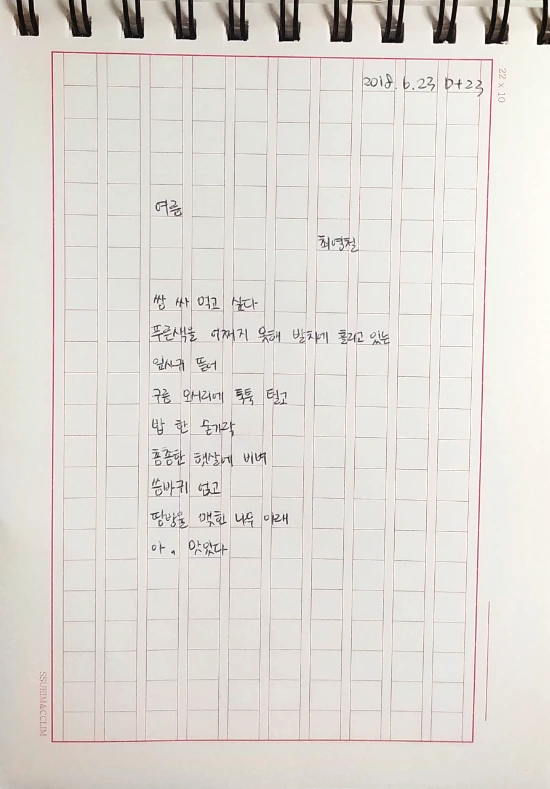 2018. 6. 23 D+23
22 x 10
여름
최영철
쌈 싸 먹고 싶다
푸른색을 어쩌지 못해 발치에 흘리고 있는
잎사귀 뜯어
구름 모서리에 툭툭 털고
밥 한 숟가락
촘촘한 햇살에 비벼
씀바귀 얹고
땀방울 맺힌 나무 아래
아, 맛있다
SSURIM&CCLIM